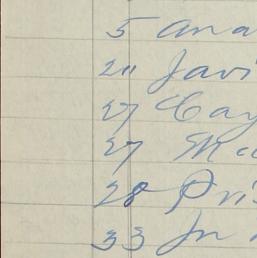 5 Ana
211 Javi
27 Cay
27 Ma
28 Pris
33 Jn